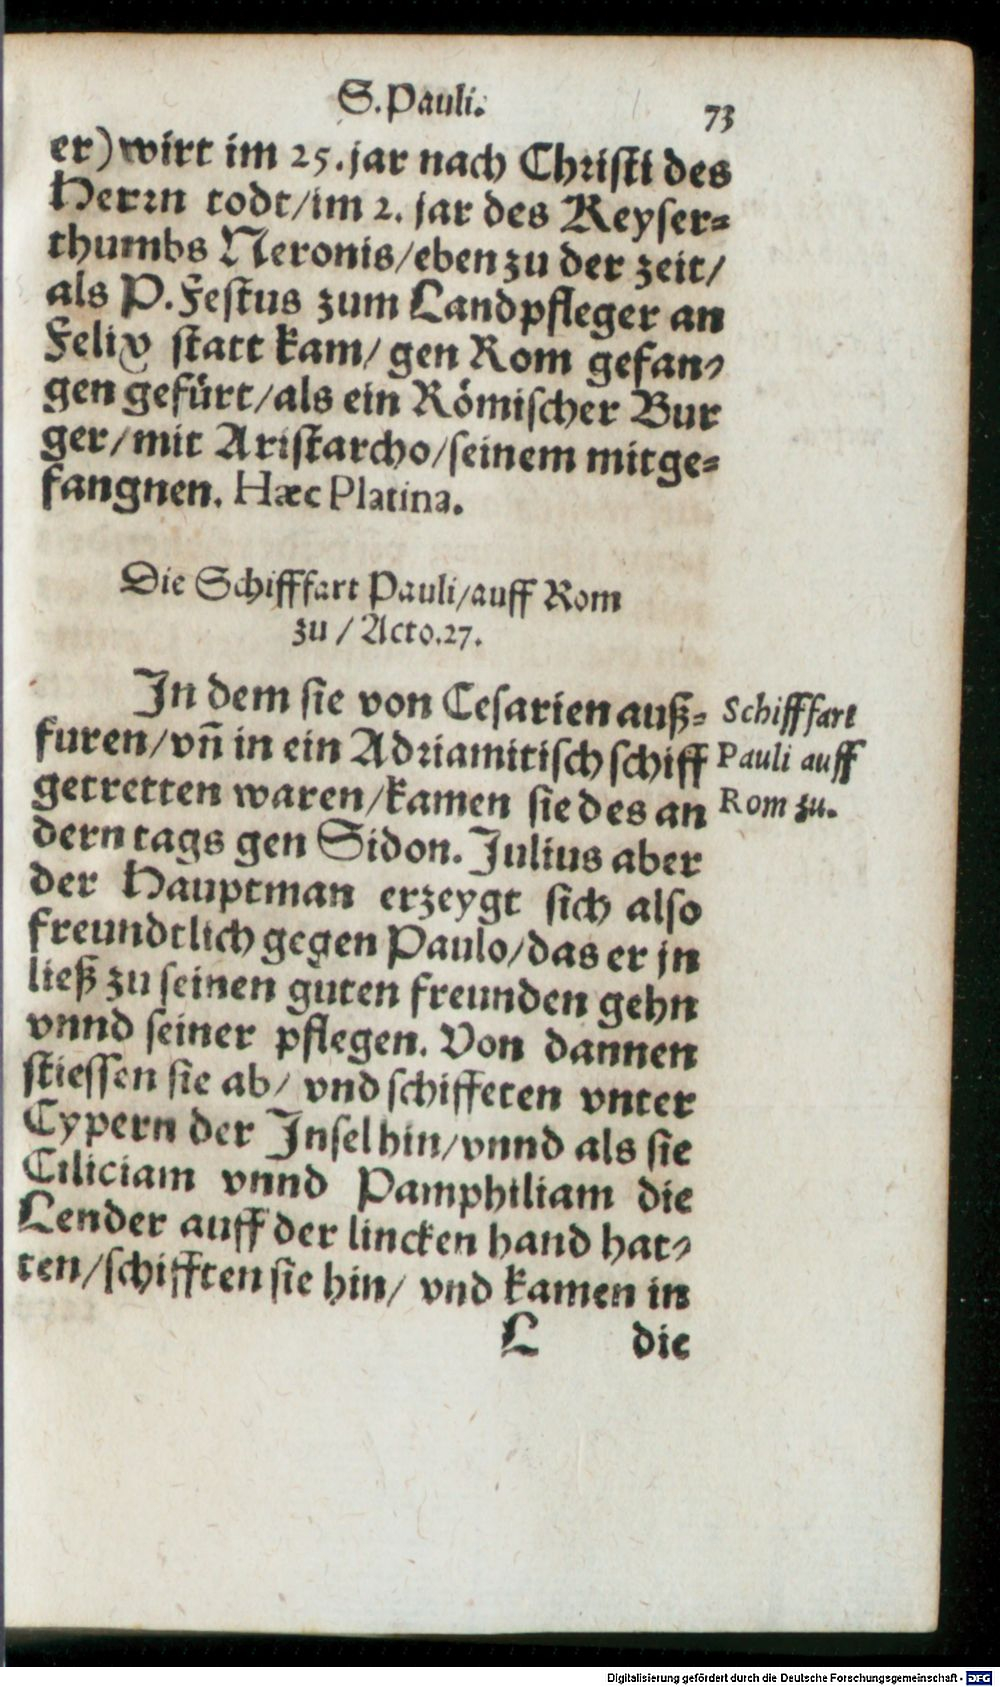 S. Pauli. 73
er) wirt im 25. jar nach Christi des
Herrn todt/im 2. jar des Keyser=
thumbs Neronis/eben zu der zeit/
als P. Festus zum Landpfleger an
Felix statt kam/ gen Rom gefan=
gen gefürt/als ein Römischer Bur
ger/mit Aristarcho/seinem mitge=
fangnen. Hæc Platina.
Die Schifffart Pauli/auff Rom
zu / Acto.27.
In dem sie von Cesarien auß=
furen/vñ in ein Adriamitisch schiff
getretten waren/kamen sie des an
dern tags gen Sidon. Julius aber
der Hauptman erzeygt sich also
freundtlich gegen Paulo/das er jn
ließ zu seinen guten freunden gehn
vnnd seiner pflegen. Von dannen
stiessen sie ab/ vnd schiffeten vnter
Cypern der Insel hin/vnnd als sie
Ciliciam vnnd Pamphiliam die
Lender auff der lincken hand hat=
ten/schifften sie hin/ vnd kamen in
L die
Schifffart
Pauli auff
Rom zu.
Digitalisierung gefördert durch die Deutsche Forschungsgemeinschaft - DFG